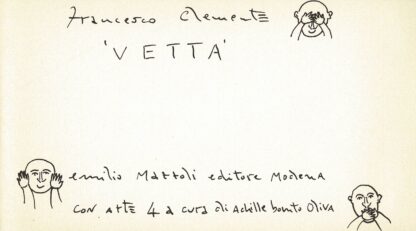 Francesco Clemente
'VETTA'
emilio Mattoli editore Modena
con arte 4 a cura di Achille bonito Oliva